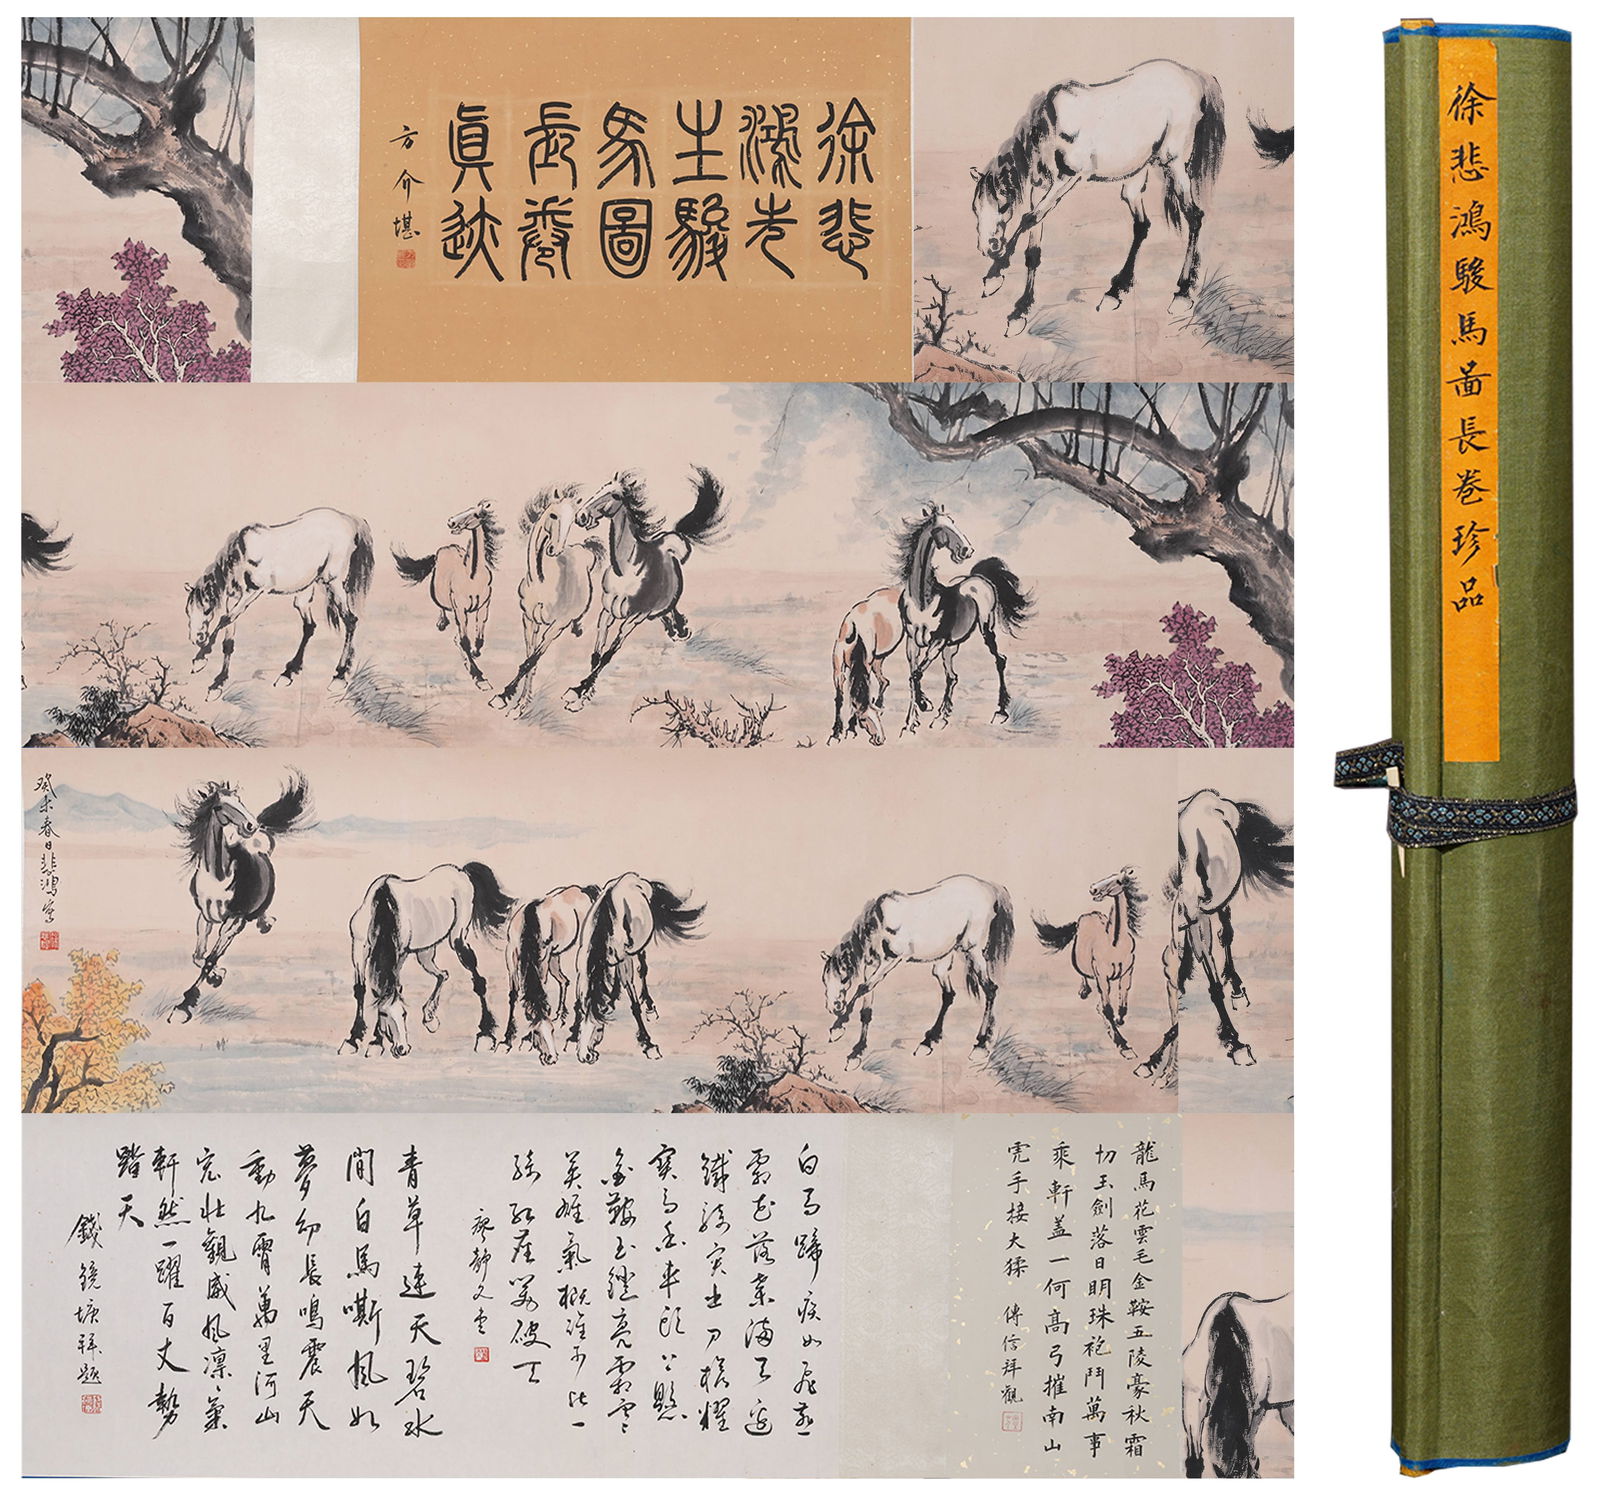 徐悲
鴻先
生駿
馬圖
長卷
真迹
方介堪
徐悲鴻駿馬啚長卷珍品
癸未春日悲鴻寫
龍馬花雲毛金鞍五陵豪秋霜
切玉劍落日明珠袍鬥萬事
乘軒蓋一何高弓摧南山
虎手接大猱
傳信拜觀
白馬蹄疾如飛燕
霜花落葉滿天邊
鐵騎突出刀槍耀
寶馬香車
金鞍玉鐙亮霜雪
英雄氣概誰可比一
騎紅塵笑破天
廖靜文書
青草連天碧水
間白馬嘶風如
夢幻長鳴震天
動九霄萬里河山
宏壯觀威風凛〻氣
軒然一躍百丈勢
踏天
錢鏡塘拜題